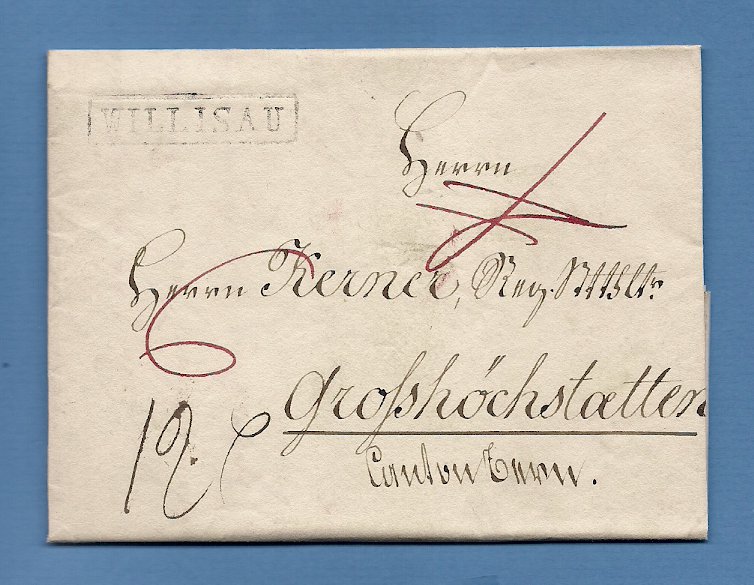 WILLISAU
Herrn
Herrn Kerner, Reg. Sttthltr.
Grosshöchstætten
Canton Bern.
12.